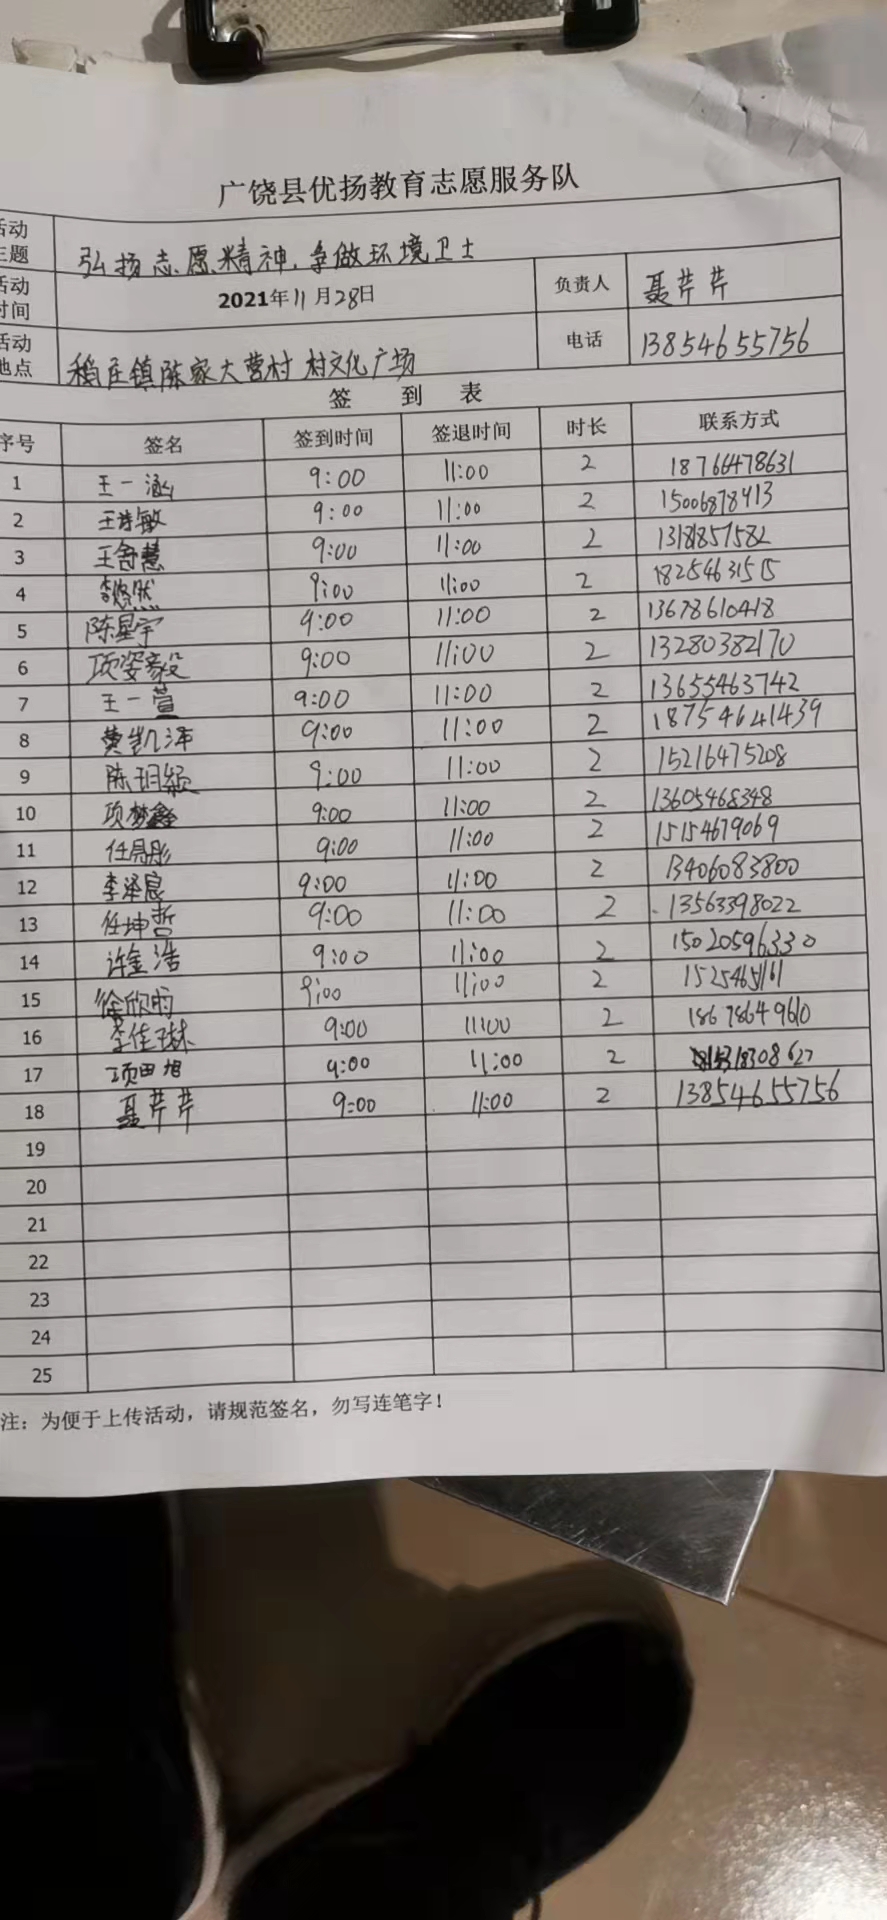 广饶县优扬教育志愿服务队
活动主题 弘扬志愿精神,争做环境卫士
活动时间 2021年11月28日 负责人 聂芹芹
活动地点 稻庄镇陈家大营村 村文化广场 电话 13854655756
签 到 表
序号 签名 签到时间 签退时间 时长 联系方式
1 王一涵 9:00 11:00 2 18766478631
2 王诗敏 9:00 11:00 2 15006878413
3 王舒慧 9:00 11:00 2 13181857582
4 李悠然 9:00 11:00 2 18254631515
5 陈星宇 9:00 11:00 2 13678610418
6 项姿毅 9:00 11:00 2 13280382170
7 王一萱 9:00 11:00 2 13655463742
8 黄凯泽 9:00 11:00 2 18754641439
9 陈玥颖 9:00 11:00 2 15216475208
10 项梦鑫 9:00 11:00 2 13605468348
11 任 9:00 11:00 2 15154679069
12 李泽宸 9:00 11:00 2 13406083800
13 任坤哲 9:00 11:00 2 13563398022
14 许金浩 9:00 11:00 2 15020596330
15 徐欣雨 9:00 11:00 2 15254651161
16 李佳琳 9:00 11:00 2 18678649610
17 项田旭 9:00 11:00 2
18 聂芹芹 9:00 11:00 2 13854655756
19
20
21
22
23
24
25
注:为便于上传活动,请规范签名,勿写连笔字!